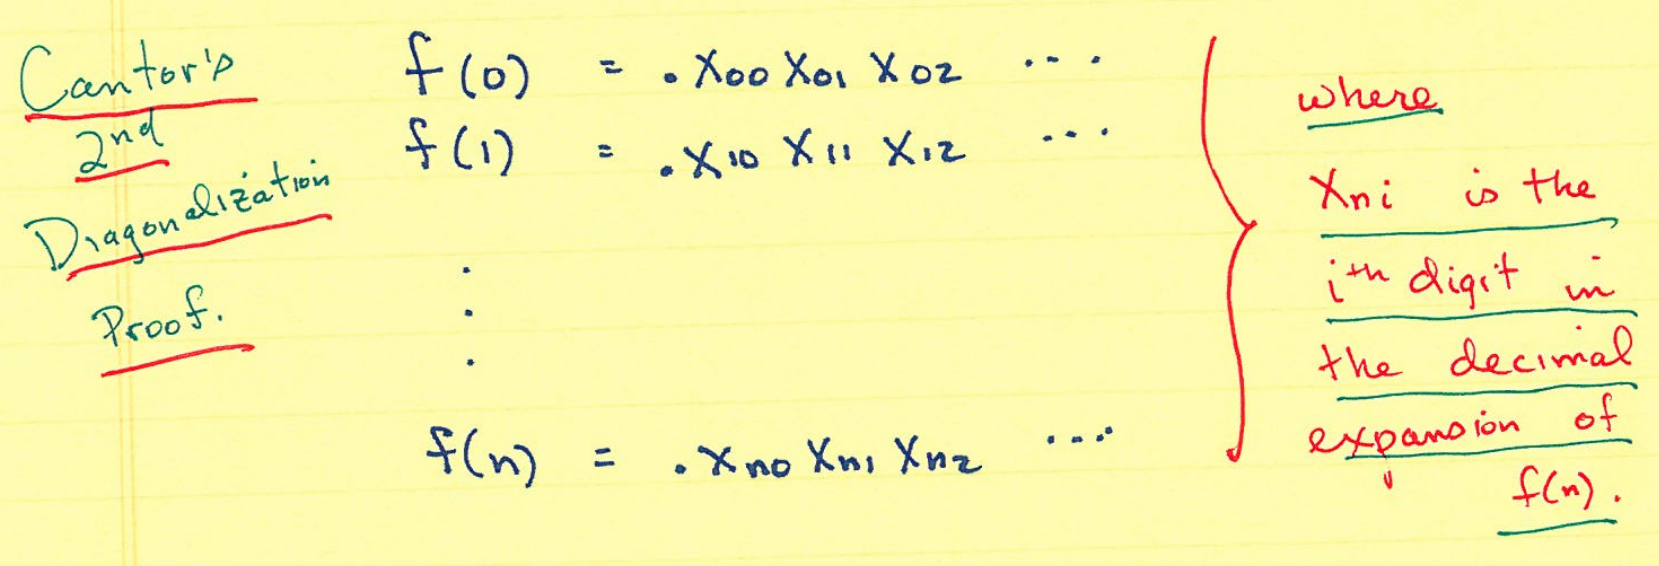 Cantor's
2nd
Diagonalization
Proof.
f(0) = .x00 x01 x02 ...
f(1) = .x10 x11 x12 ...
.
.
.
f(n) = .xn0 xn1 xn2 ...
where
xni is the
ith digit in
the decimal
expansion of
f(n).